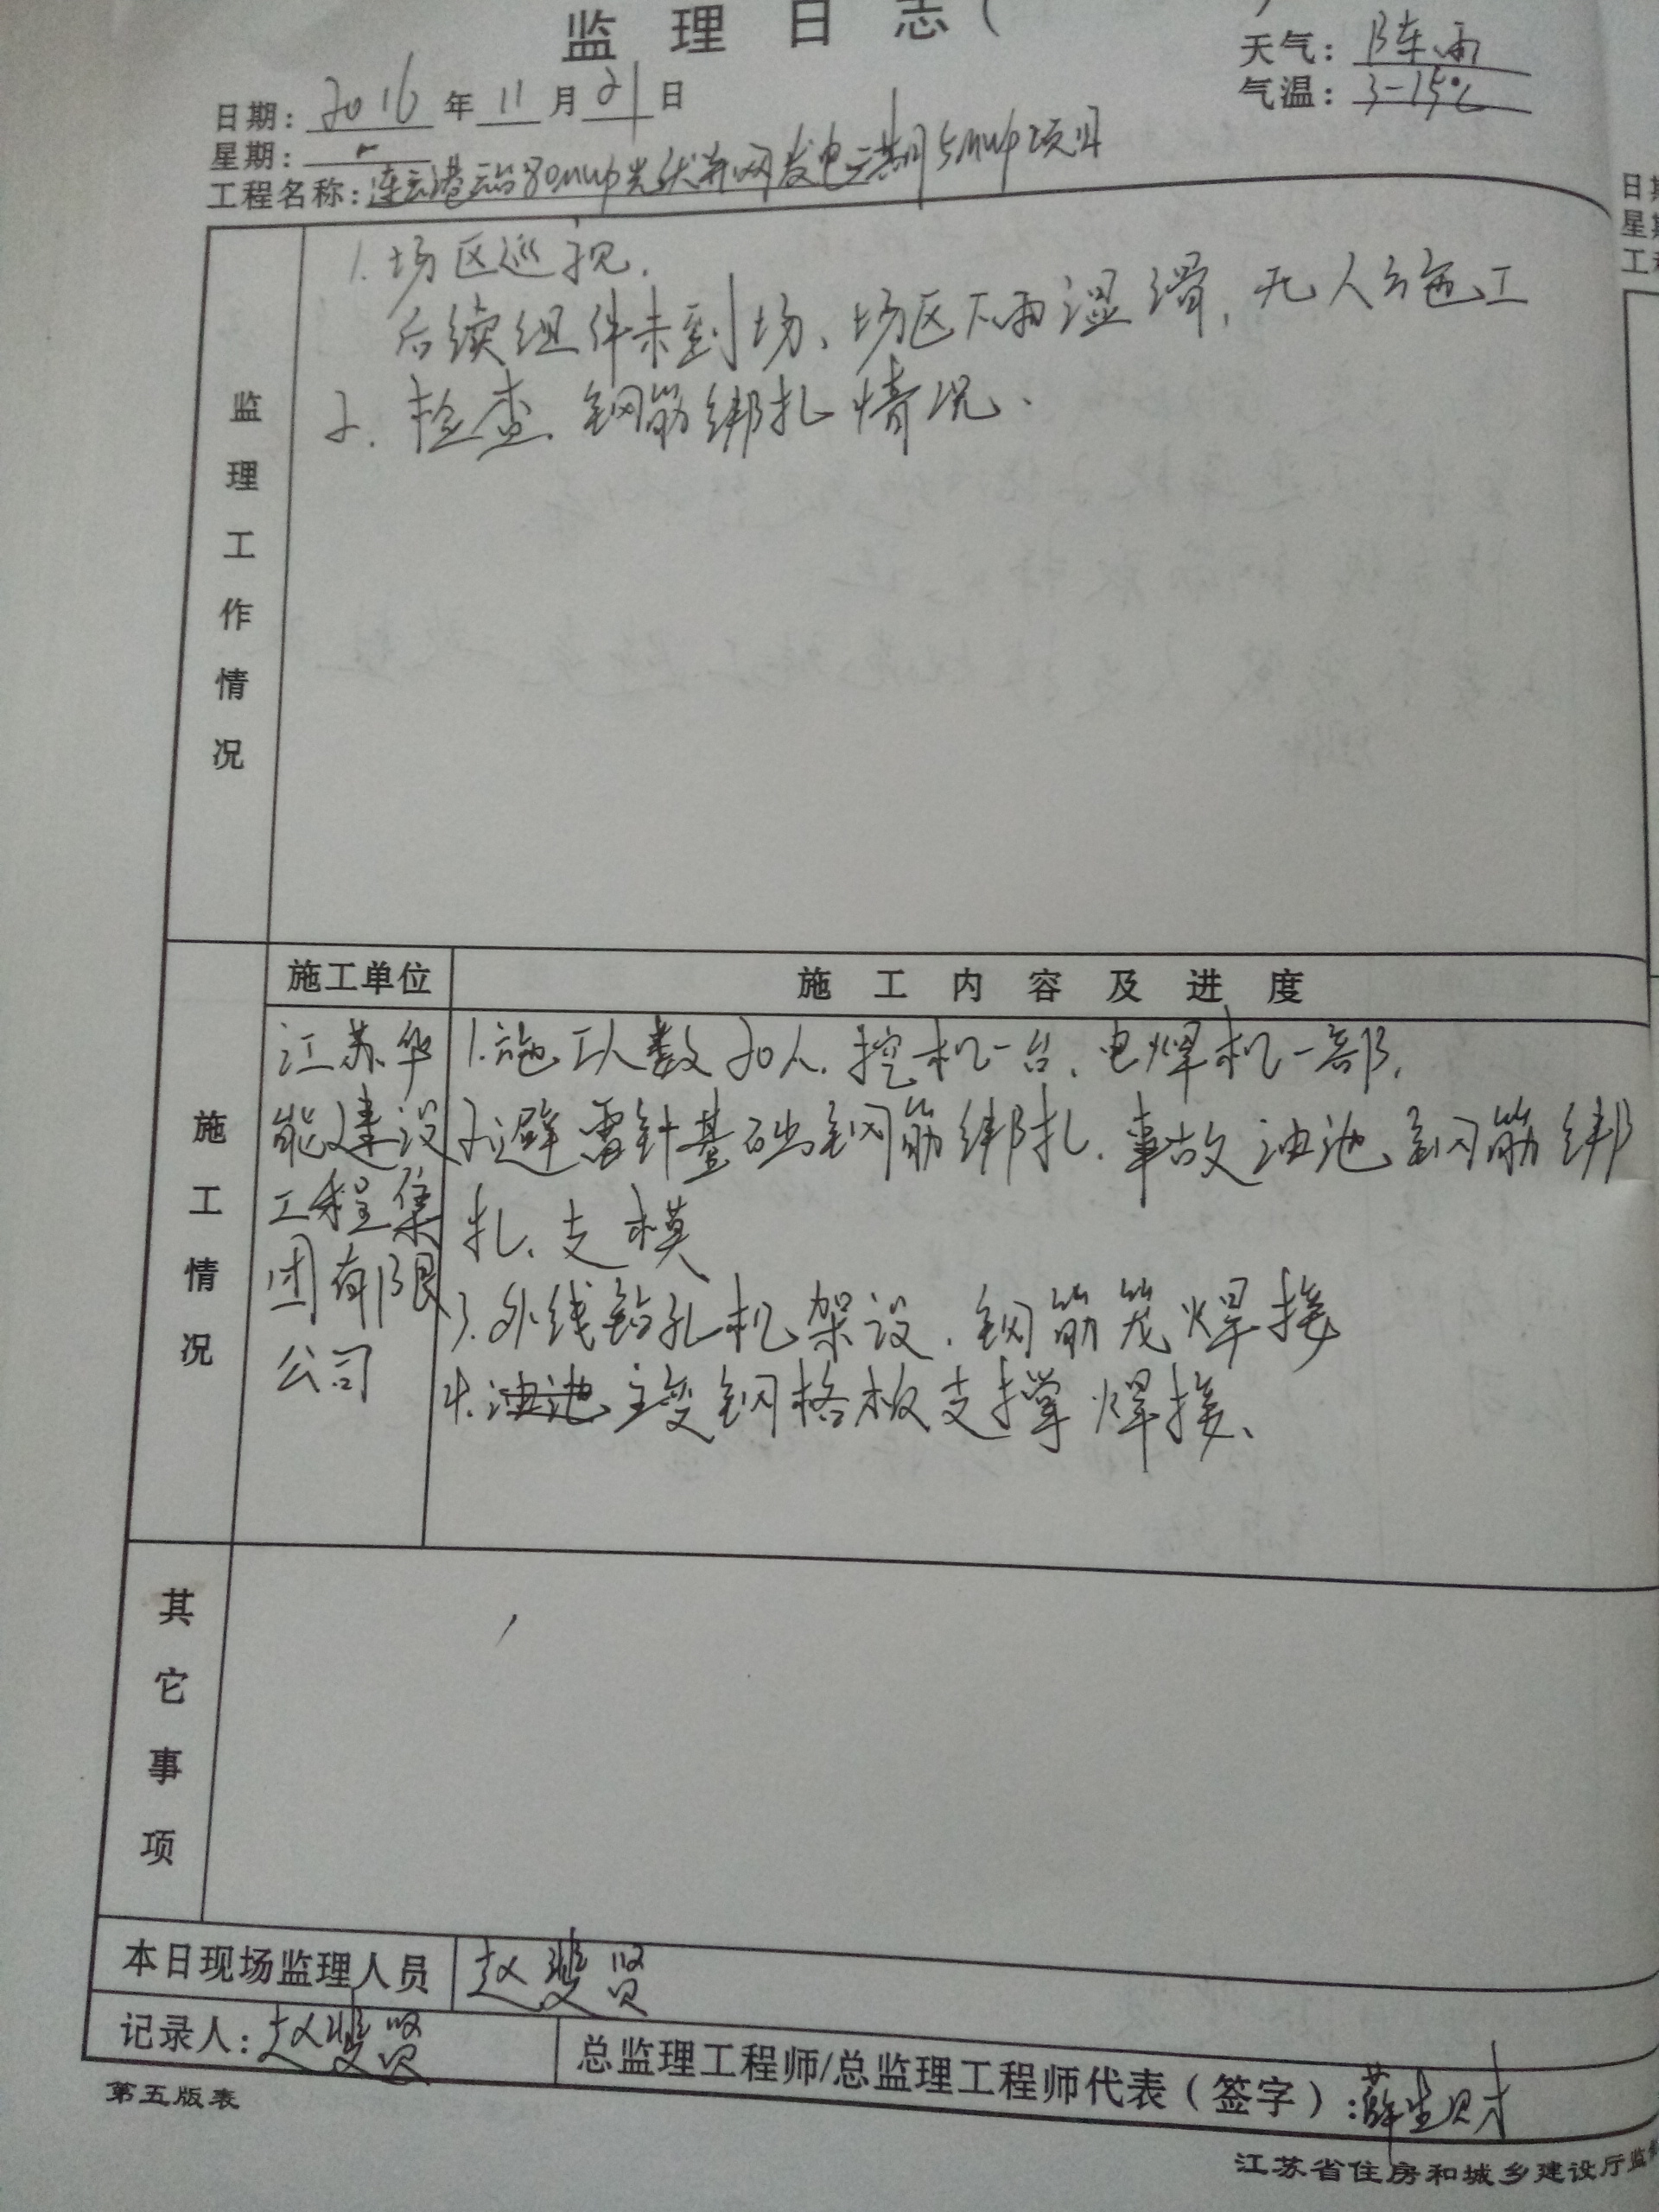 监理日志（
天气：阵雨
气温：3-15℃
日期：2016年11月21日
星期：一
工程名称：连云港云台80mwp光伏并网发电二期5mwp项目
1.场区巡视.
后续组件未到场、场区下雨湿滑，无人员施工
2.检查钢筋绑扎情况.
监理工作情况
施工单位
施工内容及进度
施工情况
江苏华
能建设
工程集
团有限
公司
1.施工人数20人.挖机一台、电焊机一部,
2.避雷针基础钢筋绑扎.事故油池钢筋绑
扎、支模
3.外线钻孔机架设.钢筋笼焊接
4.主变钢格板支撑焊接、
其它事项
本日现场监理人员
赵斐贤
记录人：赵斐贤
总监理工程师/总监理工程师代表（签字）：薛生财
第五版表
江苏省住房和城乡建设厅监
日
星
工